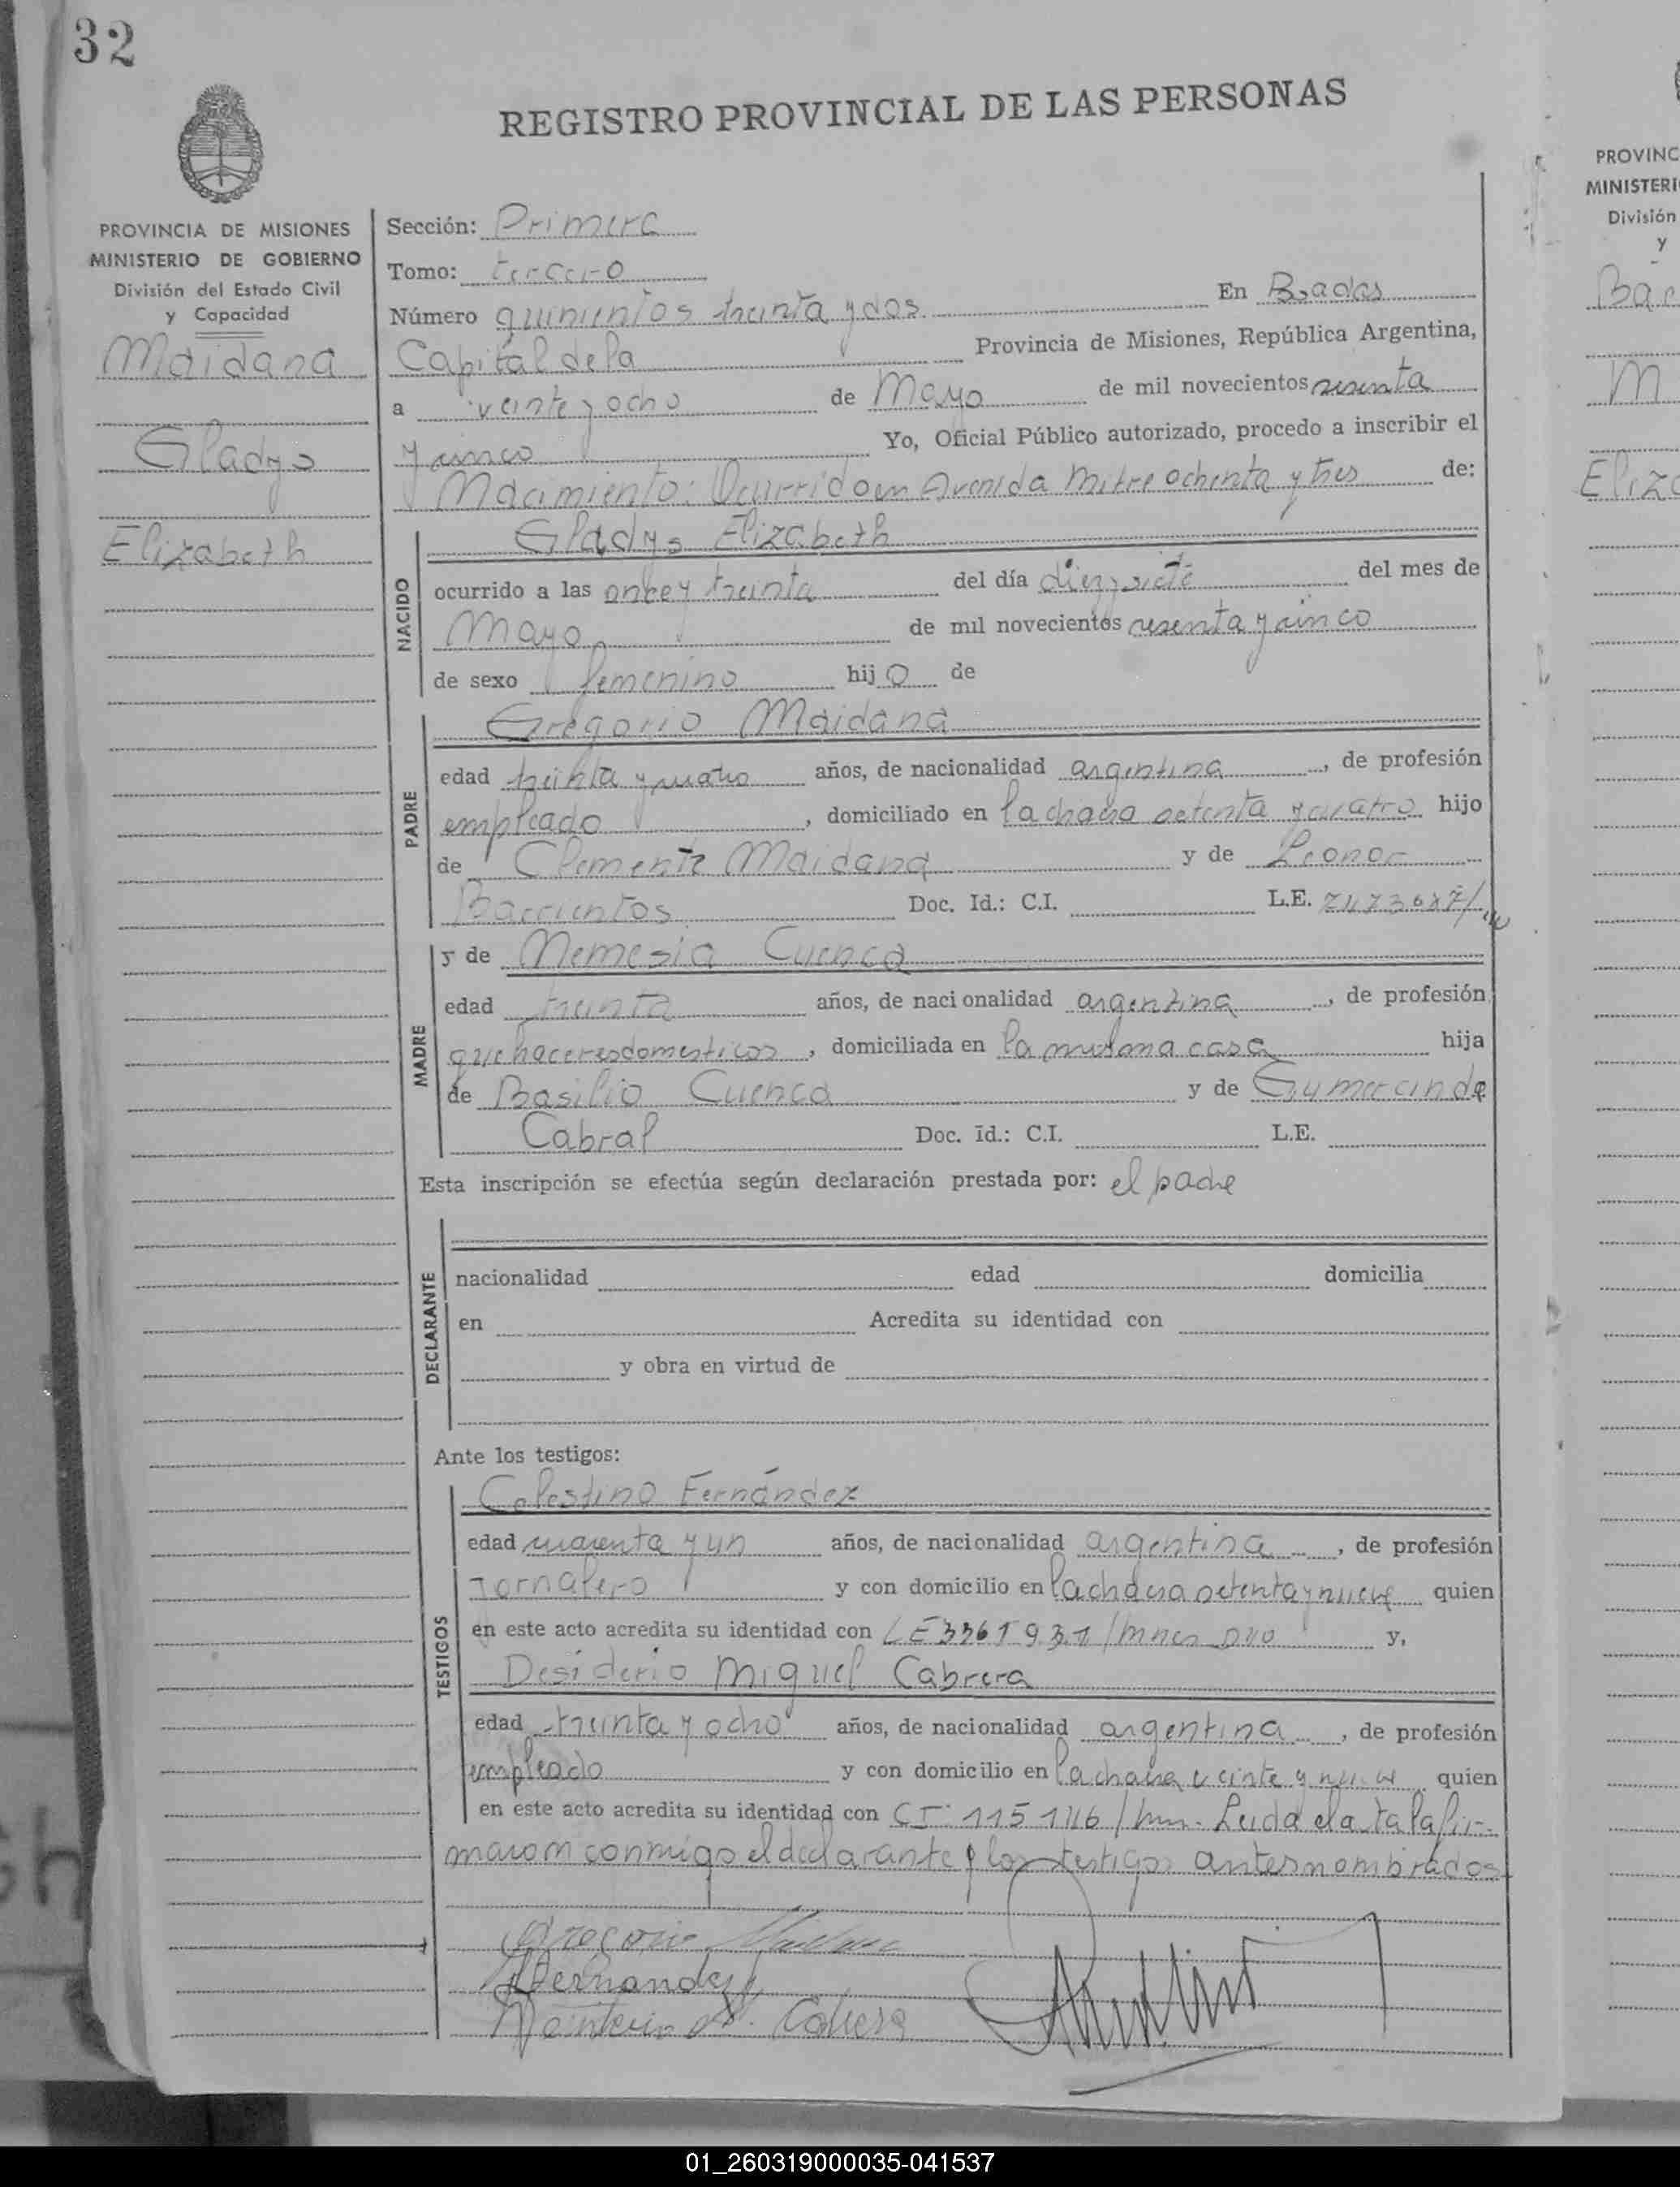 32
REGISTRO PROVINCIAL DE LAS PERSONAS
PROVINCIA DE MISIONES
MINISTERIO DE GOBIERNO
División del Estado Civil
y Capacidad
Maidana
Gladys
Elizabeth
Sección: Primera
Tomo: tercero
Número quinientos treinta y dos En Psadas
Capital de la Provincia de Misiones, República Argentina,
a veinte y ocho de Mayo de mil novecientos sesenta
y cinco Yo, Oficial Público autorizado, procedo a inscribir el
Nacimiento: Ocurrido en Avenida Mitre ochenta y tres de:
NACIDO
Gladys Elizabeth
ocurrido a las once y treinta del día diez y siete del mes de
Mayo de mil novecientos sesenta y cinco
de sexo femenino hijo de
PADRE
Gregorio Maidana
edad treinta y cuatro años, de nacionalidad argentina, de profesión
empleado, domiciliado en la chacra setenta y cuatro hijo
de Clemente Maidana y de Leonor
Barrientos Doc. Id.: C.I. L.E.
MADRE
y de Nemesia Cuenca
edad treinta años, de nacionalidad argentina, de profesión
quehaceres domesticos, domiciliada en la misma casa hija
de Basilio Cuenca y de Gumercinda
Cabral Doc. Id.: C.I. L.E.
Esta inscripción se efectúa según declaración prestada por: el padre
DECLARANTE
nacionalidad edad domicilia
en Acredita su identidad con
y obra en virtud de
Ante los testigos:
TESTIGOS
Celestino Fernández
edad cuarenta y un años, de nacionalidad argentina, de profesión
Jornalero y con domicilio en la chacra setenta y nueve quien
en este acto acredita su identidad con LE y,
Desiderio Miguel Cabrera
edad treinta y ocho años, de nacionalidad argentina, de profesión
empleado y con domicilio en la chacra veinte y nueve quien
en este acto acredita su identidad con CI: 115 146 / Leida el acta la fir-
maron conmigo el declarante y los testigos antes nombrados
Gregorio Maidana
Fernandez
Cabrera
PROVINC
MINISTERI
División
y
Bar
M
Eliza
01_260319000035-041537